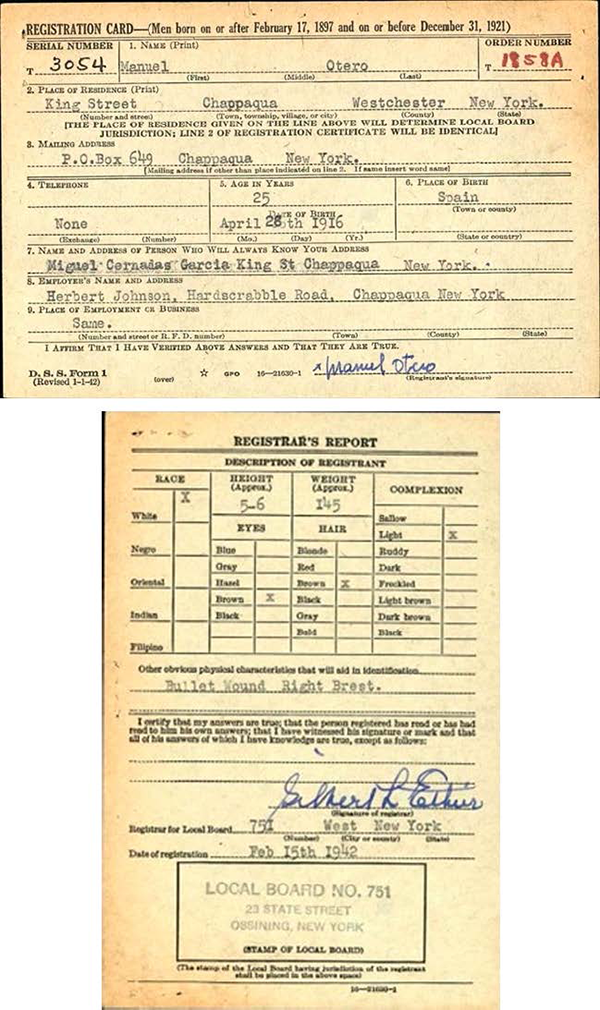 REGISTRATION CARD—(Men born on or after February 17, 1897 and on or before December 31, 1921)
SERIAL NUMBER 1. NAME (Print) ORDER NUMBER
T 3054 Manuel Otero T 1858A
(First) (Middle) (Last)
2. PLACE OF RESIDENCE (Print)
King Street Chappaqua Westchester New York.
(Number and street) (Town, township, village, or city) (County) (State)
[THE PLACE OF RESIDENCE GIVEN ON THE LINE ABOVE WILL DETERMINE LOCAL BOARD
JURISDICTION; LINE 2 OF REGISTRATION CERTIFICATE WILL BE IDENTICAL]
3. MAILING ADDRESS
P.O.Box 649 Chappaqua New York.
[Mailing address if other than place indicated on line 2. If same insert word same]
4. TELEPHONE 5. AGE IN YEARS 6. PLACE OF BIRTH
25 Spain
DATE OF BIRTH (Town or county)
None April 28th 1916
(Exchange) (Number) (Mo.) (Day) (Yr.) (State or country)
7. NAME AND ADDRESS OF PERSON WHO WILL ALWAYS KNOW YOUR ADDRESS
Miguel Cernadas Garcia King St Chappaqua New York.
8. EMPLOYER'S NAME AND ADDRESS
Herbert Johnson, Hardscrabble Road, Chappaqua New York
9. PLACE OF EMPLOYMENT OR BUSINESS
Same.
(Number and street or R. F. D. number) (Town) (County) (State)
I AFFIRM THAT I HAVE VERIFIED ABOVE ANSWERS AND THAT THEY ARE TRUE.
D. S. S. Form 1
(Revised 1-1-42) (over) ☆ GPO 16—21630-1 x Manuel Otero
(Registrant's signature)
REGISTRAR'S REPORT
DESCRIPTION OF REGISTRANT
RACE HEIGHT (Approx.) WEIGHT (Approx.) COMPLEXION
X 5-6 145
White Sallow
EYES HAIR Light X
Negro Blue Blonde Ruddy
Gray Red Dark
Oriental Hazel Brown X Freckled
Brown X Black Light brown
Indian Black Gray Dark brown
Bald Black
Filipino
Other obvious physical characteristics that will aid in identification
Bullet Wound Right Brest.
I certify that my answers are true; that the person registered has read or has had
read to him his own answers; that I have witnessed his signature or mark and that
all of his answers of which I have knowledge are true, except as follows:
(Signature of registrar)
Registrar for Local Board 751 West New York
(Number) (City or county) (State)
Date of registration Feb 15th 1942
LOCAL BOARD NO. 751
23 STATE STREET
OSSINING, NEW YORK
(STAMP OF LOCAL BOARD)
(The stamp of the Local Board having jurisdiction of the registrant
shall be placed in the above space)
16—21630-1